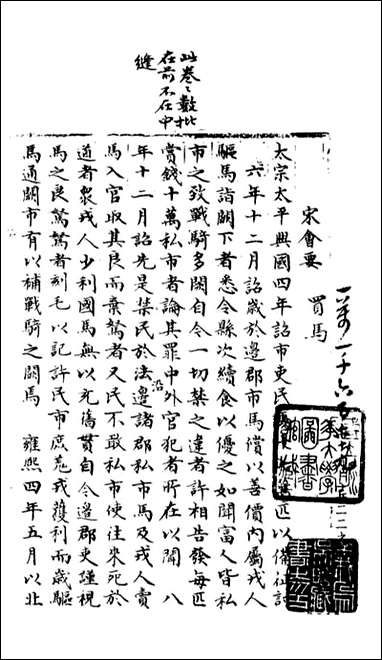 此卷卷數批
在前不在中
縫
宋會要
買馬
太宗太平興國四年詔市吏民
匹以備征討
六年十二月詔歲於邊郡市馬償以善價內屬戎人
驅馬詣闕下者悉令縣次續食以優之如聞富人皆私
市之致戰騎多闕自今一切禁之違者許相告發每匹
賞錢十萬私市者論其罪中外官犯者所在以聞 八
年十二月詔先是禁民於法邊諸郡私市馬及戎人賣
沿
馬入官取其良而棄駑者又民不敢私市使往來死於
道者眾戎人少利國馬無以充舊貫自今邊郡吏謹視
馬之良駑駑者刻毛以記許民市庶羌戎獲利而歲驅
馬通關市有以補戰騎之闕馬 雍熙四年五月以北